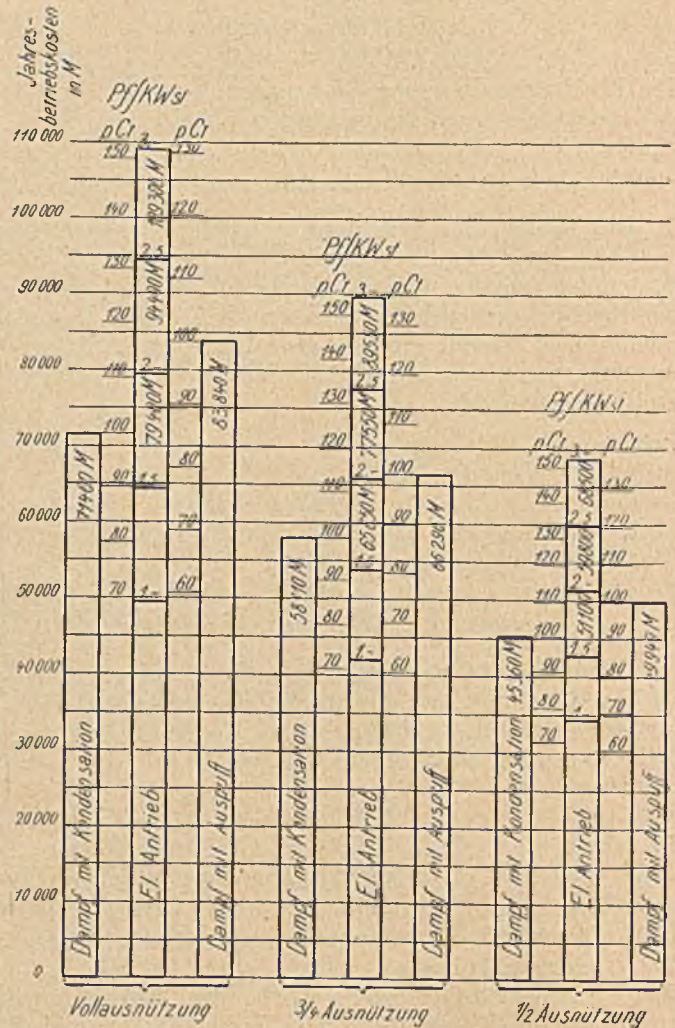 Jahres-
betriebskosten
in M
110 000
100 000
90 000
80 000
70 000
60 000
50 000
40 000
30 000
20 000
10 000
0
Pf/KWst
pCt 3.- pCt
150
140
130
120
110
100
90
80
70
130
120
110
100
90
80
70
60
109300 M
2.5
94490 M
2.-
79440 M
1.5
1.-
71400 M
83840 M
Dampf mit Kondensation
El. Antrieb
Dampf mit Auspuff
Vollausnützung
Pf/KWst
pCt 3.- pCt
150
140
130
120
110
100
90
80
70
130
120
110
100
90
80
70
60
89550 M
2.5
77550 M
2.-
65650 M
1.5
1.-
58110 M
66290 M
Dampf mit Kondensation
El. Antrieb
Dampf mit Auspuff
3/4 Ausnützung
Pf/KWst
pCt 3.- pCt
150
140
130
120
110
100
90
80
70
130
120
110
100
90
80
70
60
68500
59800
2.-
51100
1.5
Dampf mit Kondensation
El. Antrieb
Dampf mit Auspuff
1/2 Ausnützung